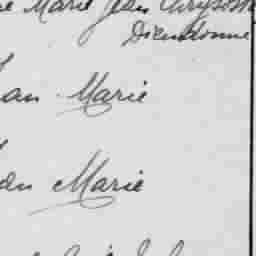 Marie Jean Chrysos
Dieudonne
an Marie
an Marie